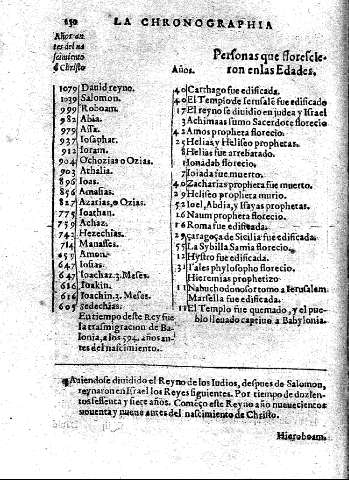 150 LA CHRONOGRAPHIA
Años an
tes del na
scimiento
d Christo
Personas que florescie-
Años. ron en las Edades.
1079 Dauid reyno. 40 Carthago fue edificada.
1039 Salomon. 40 El Templo de Ierusalē fue edificado
999 Roboam. 17 El reyno se diuidio en judea y Israel
982 Abia. 3 Achimaas sumo Sacerdote florecio
979 Assa. 42 Amos propheta florecio.
937 Iosaphat. 25 Helias y Heliseo prophetas.
912 Ioram. 8 Helias fue arrebatado.
904 Ochozias o Ozias. 1 Ionadab florecio.
903 Athalia. 7 Ioiada fue muerto.
896 Ioas. 40 Zacharias propheta fue muerto.
856 Amasias. 29 Heliseo propheta murio.
827 Azarias, o Ozias. 52 Ioel, Abdia, y Isayas prophetas.
775 Ioathan. 16 Naum propheta florecio.
759 Achaz. 16 Roma fue edificada.
742 Hezechias. 29 çaragoça de Sicilia fue edificada.
714 Manasses. 55 La Sybilla Samia florecio.
659 Amon. 12 Hystro fue edificado.
647 Iosias. 31 Tales phylosopho florecio.
647 Ioachaz. 3. Meses. Hieremias prophetizo
616 Ioakin. 11 Nabuchodonosor tomo a Ierusalem
616 Ioachin. 3. Meses. Marsella fue edificada.
605 Sedechias. 11 El Templo fue quemado, y el pue
En tiempo deste Rey fue blo lleuado captiuo a Babylonia.
la trasmigracion de Ba-
lonia, a los 594. años an-
tes del nascimiento.
Auiendose diuidido el Reyno de los Iudios, despues de Salomon,
reynaron en Israel los Reyes siguientes. Por tiempo de dozien-
tos sessenta y siete años. Començo este Reyno año nueuecientos
nouenta y nueue antes del nascimiento de Christo.
Hieroboam.